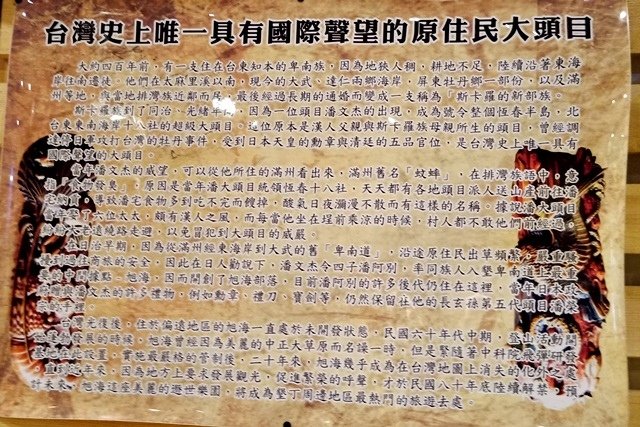 台灣史上唯一具有國際聲望的原住民大頭目
大約四百年前，有一支住在台東知本的卑南族，因為地狹人稠，耕地不足，陸續沿著東海
岸往南遷徙。他們在太麻里溪以南，現今的大武、達仁兩鄉海岸，屏東牡丹鄉一部份，以及滿
州等地，與當地排灣族近鄰而居，最後經過長期的通婚而變成一支稱為「斯卡羅的新部族。
斯卡羅族到了同治、光緒年間，因為一位頭目潘文杰的出現，成為號令整個恆春半島，北
台東東南海岸十八社的超級大頭目。這位原本是漢人父親與斯卡羅族母親所生的頭目，曾經調
達停日軍攻打台灣的牡丹事件，受到日本天皇的勳章與清廷的五品官位，是台灣史上唯一具有
國際聲望的大頭目。
當年潘文杰的威望，可以從他所住的滿州看出來，滿州舊名「蚊蟀」，在排灣族語中，意
指「食物發臭」，原因是當年潘大頭目統領恆春十八社，天天都有各地頭目派人送山產前往潘
宅納貢，導致潘宅食物多到吃不完而餿掉，酸氣日夜瀰漫不散而有這樣的名稱。據說潘大頭目
當年娶了六位太太，頗有漢人之風，而每當他坐在埕前乘涼的時候，村人都不敢從他們前經過，
遠遠繞路走避，以免冒犯到大頭目的威嚴。
在日治早期，因為從滿州經東海岸到大武的舊「卑南道」，沿途原住民出草頻繁，嚴重
到過往商旅的安全，因此在日人勸說下，潘文杰令四子潘阿別，率同族人八墾卑南道上最重
的中間據點－旭海，因而開創了旭海部落，目前潘阿別的許多後代仍住在這裡，當年日本政
與潘文杰的許多禮物，例如勳章、禮刀、寶劍等，仍然保留在他的長玄孫第五代頭目潘
台灣光復後，住於偏遠地區的旭海一直處於未開發狀態，民國六十年代中期，登山活動開
發展的時候，旭海曾經因為美麗的中正大草原而名譟一時，但是緊隨著中科院飛彈研發
基地在此設置，實施最嚴格的管制後，二十年來，旭海幾乎成為在台灣地圖上消失的化外之處
，直到近年來，因為地方上要求發展觀光，促進繁榮的呼聲，才於民國八十年底陸續解禁，預
計未來，旭海這座美麗的遯世樂園，將成為墾丁周邊地區最熱門的旅遊去處。